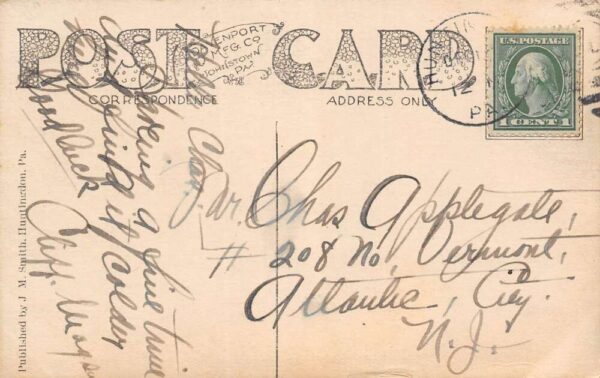 POST CARD
DAVENPORT
M'F'G. CO.
JOHNSTOWN
PA.
CORRESPONDENCE
ADDRESS ONLY
HUN
PA
U.S. POSTAGE
1 CENT 1
Hello Chas.
Am having a fine time
finding it colder
Good luck
Cliff.
Mr. Chas Applegate,
# 208 No. Vermont,
Atlantic City.
N.J.
Published by J. M. Smith, Huntingdon, Pa.